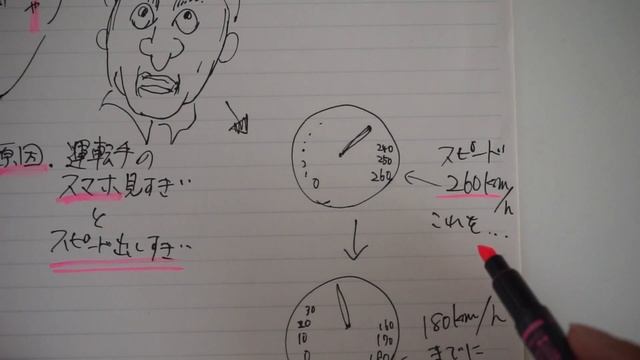 原因. 運転手の
スマホ見すぎ‥
と
スピード出しすぎ‥
240
250
260
2
1
0
スピード
260km/h
これを…
30
20
10
0
160
170
180
180km/h
までに